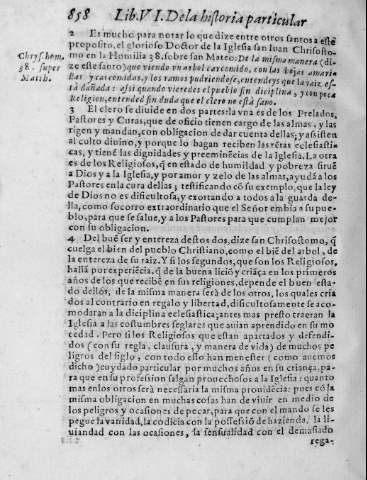 858 Lib. VI. De la historia particular
2 Es mucho para notar lo que dize entre otros santos a este
proposito, el glorioso Doctor de la Iglesia san Iuan Chrisosto-
Chrys. hom.
38. super
Matth.
mo en la Homilia 38. sobre san Mateo: De la misma manera (di-
ze este santo) que viendo un arbol carcomido, con las hojas amari-
llas y carcomidas, y los ramos pudriendose, entendeys que la raiz es-
tà dañada: assi quando vieredes el pueblo sin diciplina, y con poca
Religion, entended sin duda que el clero no està sano.
3 El clero se diuide en dos partes la vna es de los Prelados,
Pastores y Curas, que de oficio tienen cargo de las almas, y las
rigen y mandan, con obligacion de dar cuenta dellas, y assisten
al culto diuino, y porque lo hagan reciben las rẽtas eclesiasti-
cas, y tienẽ las dignidades y preeminẽcias de la Iglesia. La otra
es de los Religiosos, q̃ en estado de humildad y pobreza siruẽ
a Dios y a la Iglesia, y por amor y zelo de las almas, ayudã a los
Pastores en la cura dellas; testificando cõ su exemplo, que la ley
de Dios no es dificultosa, y exortando a todos a la guarda de-
lla, como socorro extraordinario que el Señor embia a su pue-
blo, para que se salue, y a los Pastores para que cumplan mejor
con su obligacion.
4 Del buẽ ser y entereza destos dos, dize san Chrisostomo, q̃
cuelga el bien del pueblo Christiano, como el biẽ del arbol, de
la entereza de su raiz. Y si los segundos, que son los Religiosos,
hallã por experiẽcia, q̃ de la buena licio y criãça en los primeros
años de los que recibẽ en sus religiones, depende el buen esta-
do dellos, de la misma manera serà de los otros, los quales cria
dos al contrario en regalo y libertad, dificultosamente se aco-
modaran a la diciplina eclesiastica; antes mas presto traeran la
Iglesia a las costumbres seglares que auian aprendido en su mo
cedad. Pero si los Religiosos que estan apartados y defendi-
dos (con su regla, clausura, y manera de vida) de muchos pe
ligros del siglo, con todo esto han menester (como auemos
dicho) cuydado particular por muchos años en su criança, pa-
ra que en su profession salgan prouechosos a la Iglesia: quanto
mas en los otros serà necessaria la misma prouidẽcia: pues cõ la
misma obligacion en muchas cosas han de viuir en medio de
los peligros y ocasiones de pecar, para que con el mando se les
pegue la vanidad, la codicia con la possessiõ de hazienda, la li-
uiandad con las ocasiones, la sensualidad con el demasiado
rega-